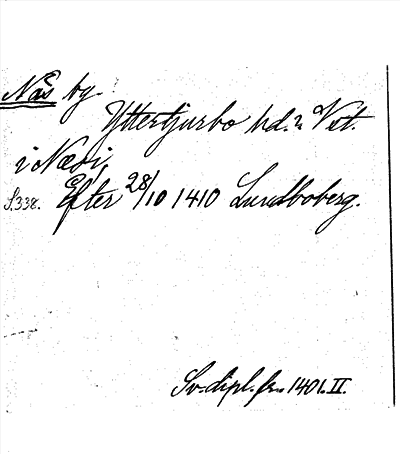 Näs by.
Yttertjurbo hd. Vst.
i Næsi,
S. 338. Efter 28/10 1410 Lundboberg.
Sv. dipl. fr. 1401. II.